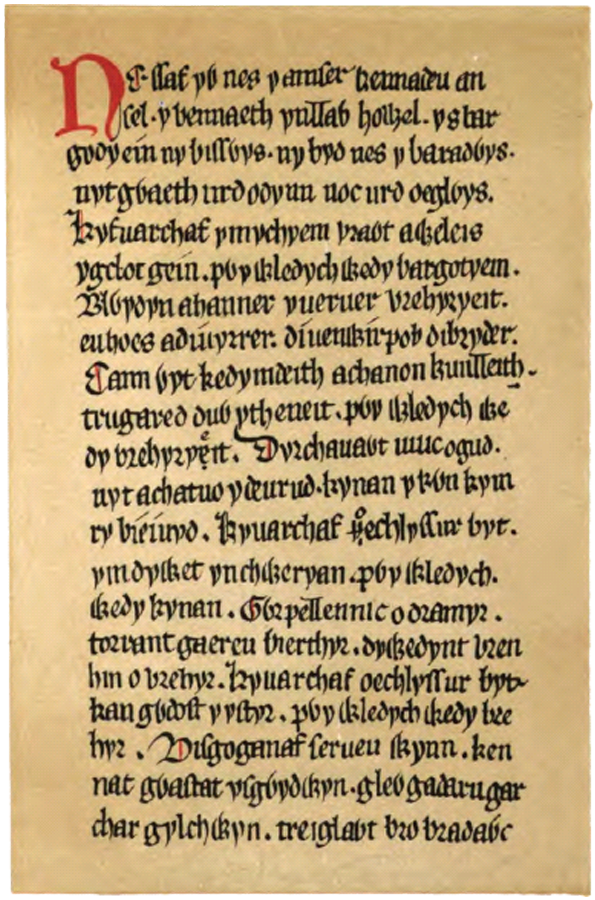 Nessaf yỽ nes y amser kennadeu an
gel. y bennaeth ynllaỽ howel. ystar
godyein ny bissỽys. ny byd nes y baradỽys.
nyt gỽaeth urd odyna noc urd oeglỽys.
Kyfuarchaf ymychyem vraỽt aỽeleis
ygelot gein. pỽy ỽledych ỽedy bargotyein.
Blỽydyn ahanner yueruer vrehyryeit.
euhoes aduiyrrer. diuenỽir pob dibryder.
Cann ỽyt kedymdeith achanon kunlleith
trugared duỽ yth eneit. pỽy ỽledych ỽe
dy vrehyryeit. Dyrchauaỽt un uc ogud.
nyt achatuo ydeurud. kynan y kỽn kym
ry bieiuyd. Kyuarchaf oechlyssur byt.
ymdyỽet ynchỽeryan. pỽy ỽledych.
ỽedy kynan. Gỽr pellennic o dramyr.
torrant gaereu ỽierthyr. dyỽedynt vren
hin o vrehyr. Kyuarchaf oechlyssur byt
kan gỽdost y ystyr. pỽy ỽledych ỽedy bre
hyr. Disgoganaf serueu ỽynn. ken
nat gỽastat ysgỽydỽyn. gleỽ gadarn gar
char gylchỽyn. treiglaỽt bro bradaỽc